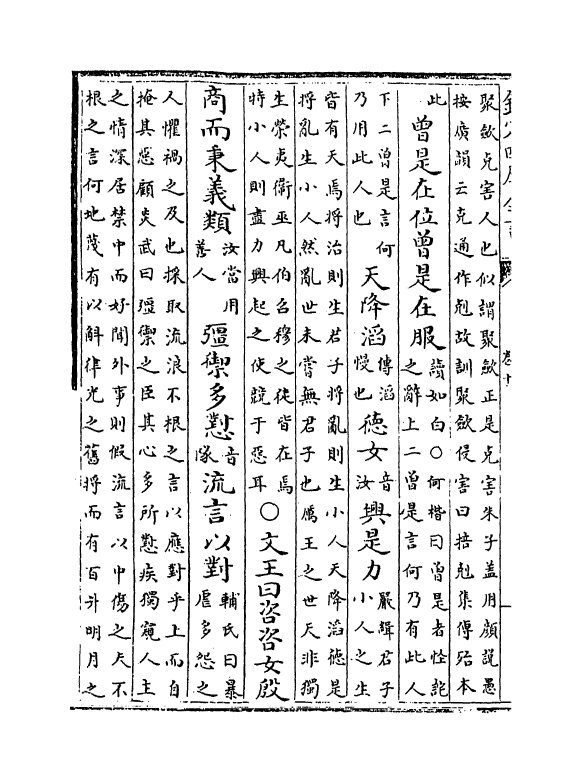 聚斂克害人也似謂聚斂正是克害朱子蓋用顔說愚
按廣韻云克通作剋故訓聚斂侵害曰掊剋集傳殆本
此曾是在位曾是在服讀如白○何楷曰曾是者怪詫之辭上二曾是言何乃有此人
下二曾是言何乃用此人也天降滔傳滔慢也德女音汝興是力嚴緝君子小人之生
皆有天焉將治則生君子將亂則生小人天降滔德是
將亂生小人然亂世未嘗無君子也厲王之世天非獨
生榮夷衛巫凡伯召穆之徒皆在焉時小人則盡力興起之使競于惡耳○文王曰咨咨女殷
商而秉義類汝當用善人彊禦多懟音隊流言以對輔氏曰暴虐多怨之
人懼禍之及也採取流浪不根之言以應對乎上而自
掩其惡顧炎武曰彊禦之臣其心多所懟疾獨窺人主
之情深居禁中而好聞外事則假流言以中傷之夫不
根之言何地蔑有以斛律光之舊將而有百升明月之